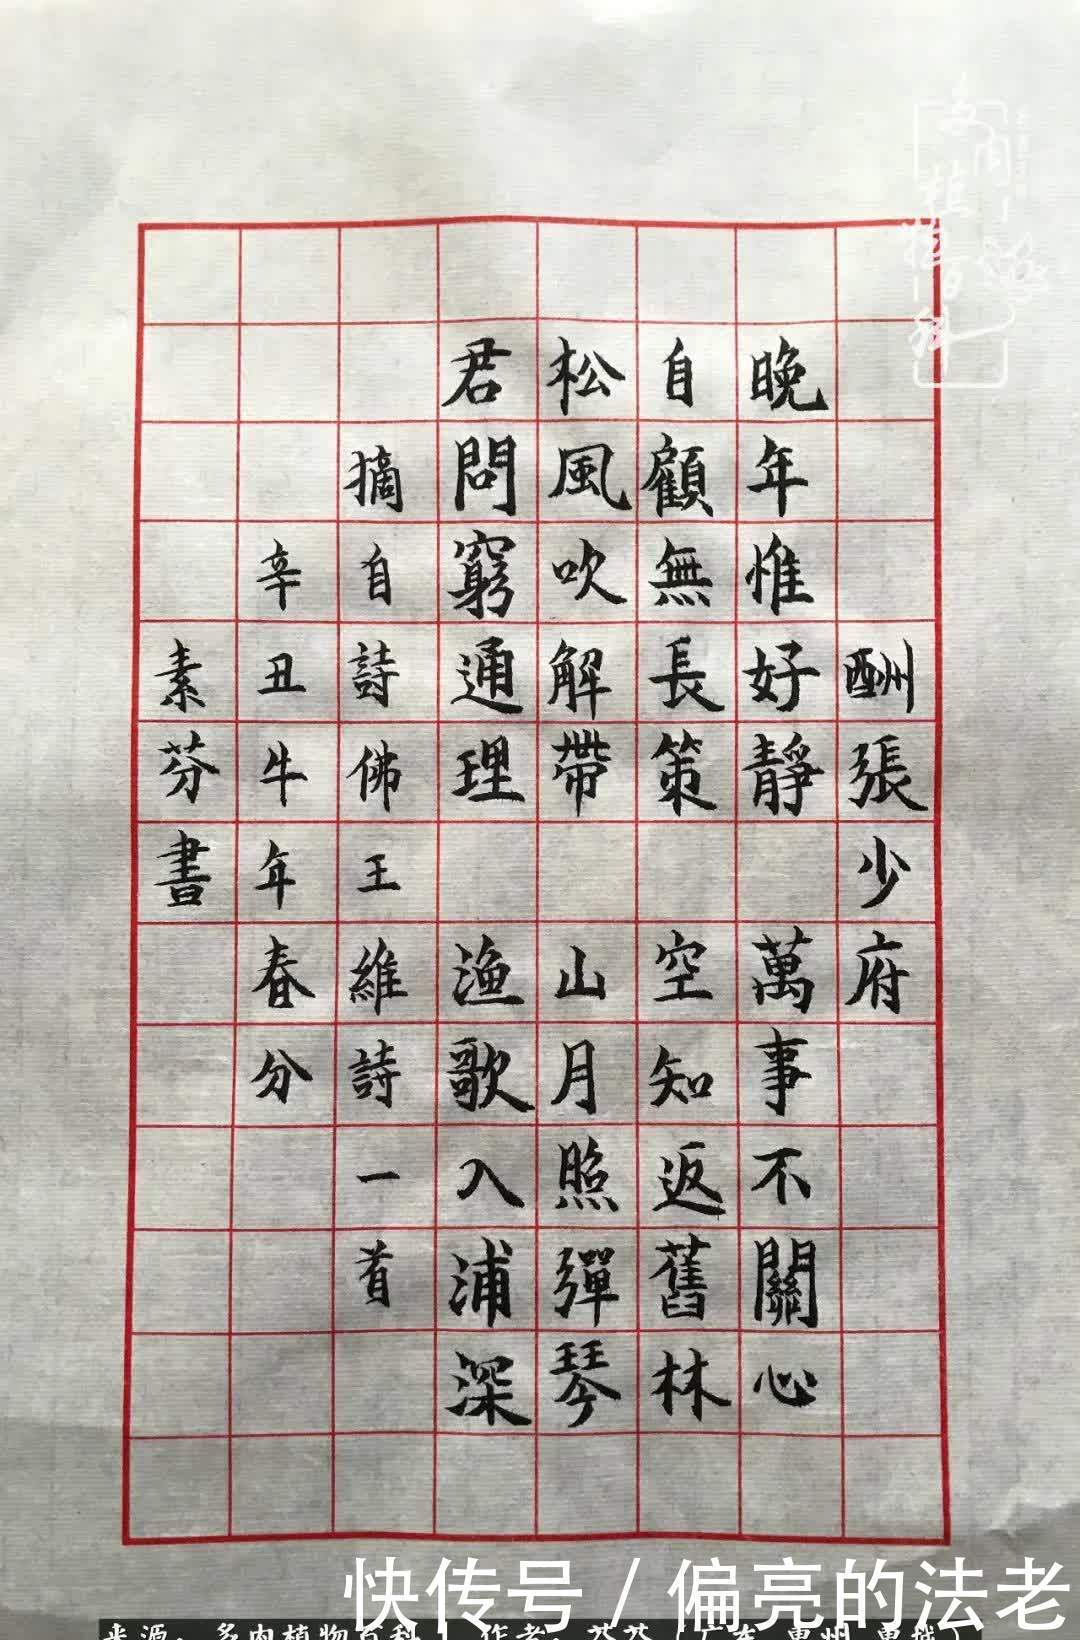 酬張少府
晚年惟好靜 萬事不關心
自顧無長策 空知返舊林
松風吹解帶 山月照彈琴
君問窮通理 漁歌入浦深
摘自詩佛王維詩一首
辛丑牛年春分
素芬書
多肉植物百科
快传号/偏亮的法老
来源：多肉植物百科